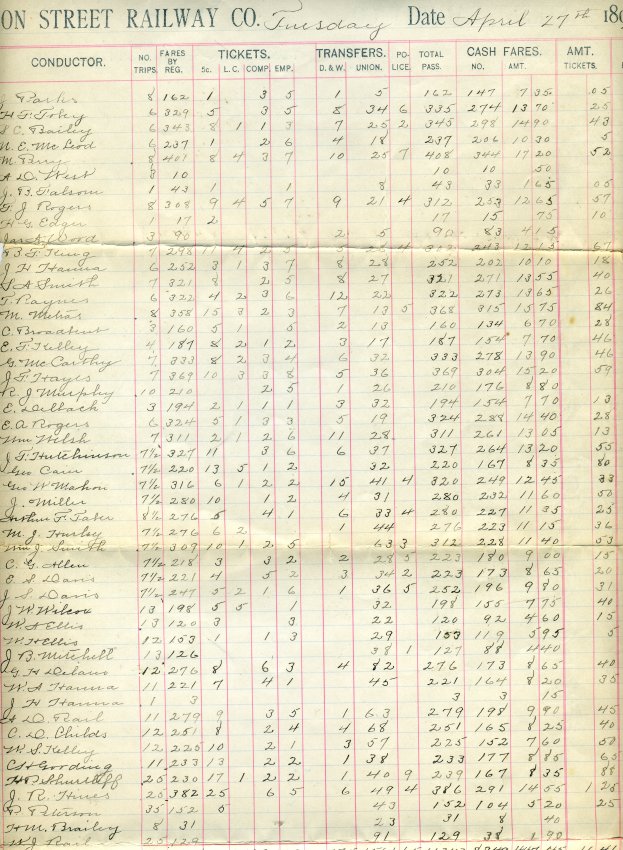 ON STREET RAILWAY CO. Tuesday Date April 27th 189
CONDUCTOR. NO. TRIPS. FARES BY REG. TICKETS. 5c. L.C. COMP. EMP. TRANSFERS. D. & W. UNION. PO-LICE. TOTAL PASS. CASH FARES. NO. AMT. AMT. TICKETS.
J Parks 8 162 1 3 5 1 5 162 147 7 35 05
H F Tobey 6 329 5 3 5 8 34 6 335 274 13 70 25
S C Bailey 6 343 8 1 1 3 7 25 2 345 298 14 90 43
N. E. McLeod 6 237 1 2 6 4 18 237 206 10 30 5
M. Bury 8 401 8 4 3 7 10 25 7 408 344 17 20 52
A. D. West 3 10 10 10 50
J. B. Falsom 1 43 1 1 8 43 33 1 65 05
F J Rogers 8 308 9 4 5 7 9 21 4 312 253 12 65 57
H G Edgar 1 17 2 17 15 75 10
Jas A. Wood 3 90 2 5 90 83 4 15
7 298 11 4 2 5 5 4 312 243 12 15 67
J H Hanna 6 252 3 1 3 7 8 28 252 202 10 10 18
S A Smith 7 321 8 2 5 8 27 321 271 13 55 40
T. Raynes 6 322 4 2 3 6 12 22 322 273 13 65 26
M. Mehas 8 358 15 3 2 3 7 13 5 368 315 15 75 84
C. Broadhurt 3 160 5 1 5 2 13 160 134 6 70 28
E. F. Kelley 4 187 8 2 1 2 3 17 187 154 7 70 46
G. McCarthy 7 333 8 2 3 4 6 32 333 278 13 90 46
J. F. Hayes 7 369 10 3 3 8 5 36 369 304 15 20 59
R. J Murphy 10 210 2 5 1 26 210 176 8 80
E. Delback 3 194 2 1 1 1 3 32 194 154 7 70 13
E. A Rogers 6 324 5 1 3 3 5 19 324 288 14 40 28
Wm Welsh 7 311 2 1 2 6 11 28 311 261 13 05 13
J. F. Hutchinson 7½ 327 11 3 6 6 37 327 264 13 20 55
Geo Carr 7½ 220 13 5 1 2 32 220 167 8 35 80
Geo W Mahon 7½ 316 6 1 2 2 15 41 4 320 249 12 45 33
J. Miller 7½ 280 10 1 2 4 31 280 232 11 60 50
Arthur F. Taber 8½ 276 5 4 1 6 33 4 280 227 11 35 25
M. J. Hurley 7½ 276 6 2 1 44 276 223 11 15 36
Wm J. Smith 7½ 309 10 1 2 5 63 3 312 228 11 40 53
C. G. Allen 7½ 218 3 3 2 2 28 5 223 180 9 00 15
E. S. Davis 7½ 221 4 5 2 3 34 2 223 173 8 65 20
J. S. Davis 7½ 247 5 2 1 6 1 36 5 252 196 9 80 31
J W Wilcox 13 198 5 5 1 32 198 155 7 75 40
W A Ellis 13 120 3 3 22 120 92 4 60 15
W H Ellis 12 153 1 1 3 29 153 119 5 95 5
J. B. Mitchell 13 126 38 1 127 88 4 40
G H Delano 12 276 8 6 3 4 82 276 173 8 65 40
W A Hanna 11 221 7 4 1 45 221 164 8 20 35
J H Hanna 1 3 3 3 15
A. D. Rail 11 279 9 3 5 1 63 279 198 9 90 45
C. D. Childs 12 251 8 2 4 4 68 251 165 8 25 40
W. S. Kelley 12 225 10 2 1 3 57 225 152 7 60 50
C H Gooding 11 233 13 2 2 1 38 233 177 8 85 65
H P Shurtleff 25 230 17 1 2 2 1 40 9 239 167 8 35 88
J. R. Hines 25 382 25 6 5 6 49 4 386 291 14 55 1 25
P. Peterson 35 152 5 43 152 104 5 20 25
H. M. Brailey 8 31 23 31 8 40
W J Rail 25 129 91 129 38 1 90